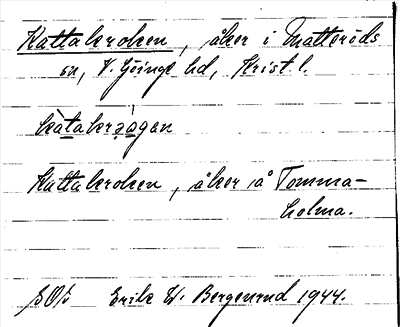 Kattakroken, åker i Matteröds
sn, V. Göinge hd, Krist. l.
Kattakroken, åker på Tomma-
holma.
Erik W. Bergenrud 1944.